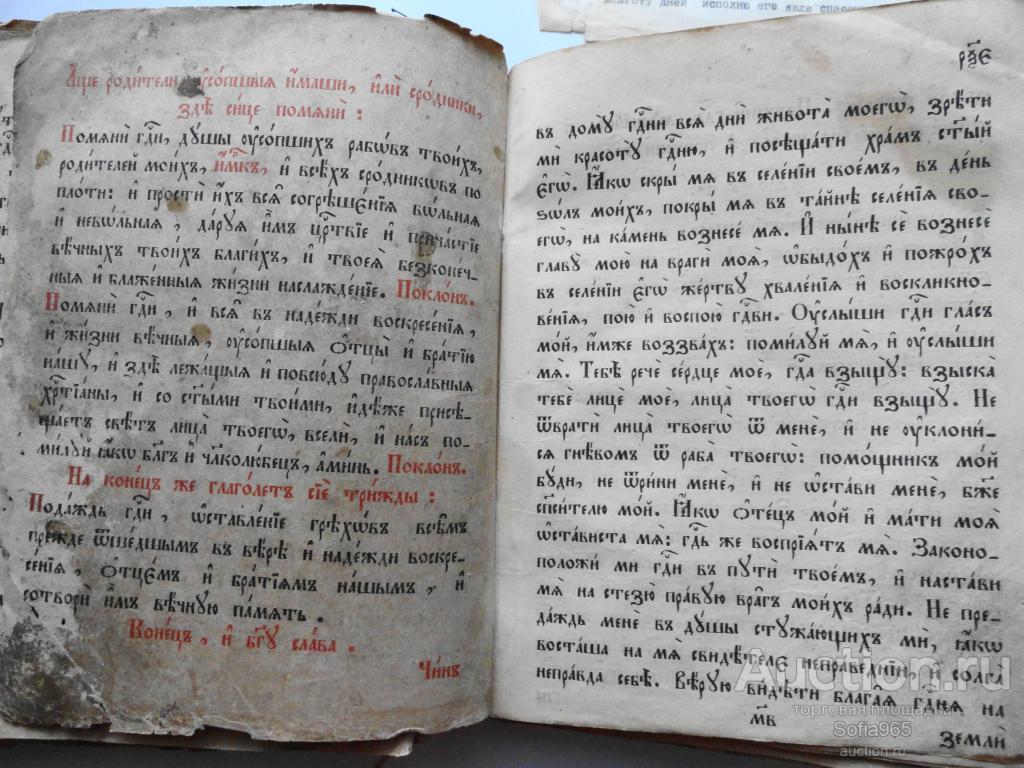 долготу дней исполню его явле спасен
А҆́ще роди́тели ᲂу҆со́пшыѧ и҆́маши, и҆лѝ сро́дники,
здѣ̀ си́це помѧнѝ :
Помѧнѝ гдⷭ҇и, дꙋ́шы ᲂу҆со́пшихъ рабѡ́въ твои́хъ,
роди́телей мои́хъ, и҆́м҃къ, и҆ всѣ́хъ сро́дникѡвъ по
пло́ти: и҆ простѝ и҆̀хъ всѧ̑ согрѣшє́нїѧ вѡ́льнаѧ
и҆ невѡ́льнаѧ , да́рꙋѧ и҆̀мъ црⷭ҇твїе и҆ прича́стїе
вѣ́чныхъ твои́хъ благи́хъ, и҆ твоеѧ̀ безконе́ч-
ныѧ и҆ блаже́нныѧ жи́зни наслажде́нїе. Покло́нъ.
Помѧнѝ гдⷭ҇и , и҆ всѧ̑ въ наде́жди воскресе́нїѧ,
и҆ жи́зни вѣ́чныѧ, ᲂу҆со́пшыѧ ѻ҆тцы̀ и҆ бра́тїю
на́шꙋ, и҆ здѣ̀ лежа́щыѧ и҆ повсю́дꙋ правосла́вныѧ
хрⷭ҇тїа́ны, и҆ со ст҃ы́ми твои́ми, и҆дѣ́же присѣ-
ща́етъ свѣ́тъ лица̀ твоегѡ̀, вселѝ, и҆ на́съ по-
ми́лꙋй ꙗ҆́кѡ бл҃гъ и҆ чл҃колю́бецъ, а҆ми́нь. Покло́нъ.
На коне́цъ же глаго́летъ сїѐ три́жды :
Пода́ждь гдⷭ҇и, ѡ҆ставле́нїе грѣхѡ́въ всѣ̑мъ
пре́жде ѿше́дшымъ въ вѣ́рѣ и҆ наде́жди воскре-
се́нїѧ, ѻ҆тцє́мъ и҆ бра́тїѧмъ на́шымъ, и҆
сотворѝ и҆̀мъ вѣ́чнꙋю па́мѧть .
Коне́цъ , и҆ бг҃ꙋ сла́ва .
Чи́нъ
въ домꙋ̀ гдⷭ҇ни всѧ̑ дни̑ живота̀ моегѡ̀, зрѣ́ти
мѝ красотꙋ̀ гдⷭ҇ню, и҆ посѣща́ти хра́мъ ст҃ы́й
є҆гѡ̀. Ꙗ҆́кѡ скры́ мѧ въ селе́нїи свое́мъ, въ де́нь
ѕѡ́лъ мои́хъ, покры́ мѧ въ та́йнѣ селе́нїѧ сво-
егѡ̀, на ка́мень вознесе́ мѧ. И҆ ны́нѣ сѐ вознесѐ
главꙋ̀ мою̀ на врагѝ моѧ̑, ѡ҆быдо́хъ и҆ пожро́хъ
въ селе́нїи є҆гѡ̀ же́ртвꙋ хвале́нїѧ и҆ воскликно-
ве́нїѧ, пою̀ и҆ воспою̀ гдⷭ҇ви. Оу҆слы́ши гдⷭ҇и гла́съ
мо́й, и҆́мже воззва́хъ: поми́лꙋй мѧ̀, и҆ ᲂу҆слы́ши
мѧ̀. Тебѣ̀ речѐ се́рдце моѐ, гдⷭ҇а взыщꙋ̀: взыска̀
тебѐ лицѐ моѐ, лица̀ твоегѡ̀ гдⷭ҇и взыщꙋ̀. Не
ѿвратѝ лица̀ твоегѡ̀ ѿ менє̀, и҆ не ᲂу҆клони́-
сѧ гнѣ́вомъ ѿ раба̀ твоегѡ̀: помо́щникъ мо́й
бꙋ́ди, не ѿри́ни менѐ, и҆ не ѡ҆ста́ви менѐ, бж҃е
сп҃си́телю мо́й. Ꙗ҆́кѡ ѻ҆те́цъ мо́й и҆ ма́ти моѧ̀
ѡ҆ста́виста мѧ̀: гдⷭ҇ь же воспрїѧ́тъ мѧ̀. Законо-
положи́ ми гдⷭ҇и въ пꙋтѝ твое́мъ, и҆ наста́ви
мѧ̀ на стезю̀ пра́вꙋю вра̑гъ мои́хъ ра́ди. Не пре-
да́ждь менѐ въ дꙋ́шы стꙋжа́ющихъ мѝ, ꙗ҆́кѡ
воста́ша на мѧ̀ свидѣ́телє непра́веднїи, и҆ солга̀
непра́вда себѣ̀. Вѣ́рꙋю ви́дѣти блага̑ѧ гдⷭ҇нѧ на
мв
землѝ
Auction.ru
торговая площадка
Sofia965
auction.ru